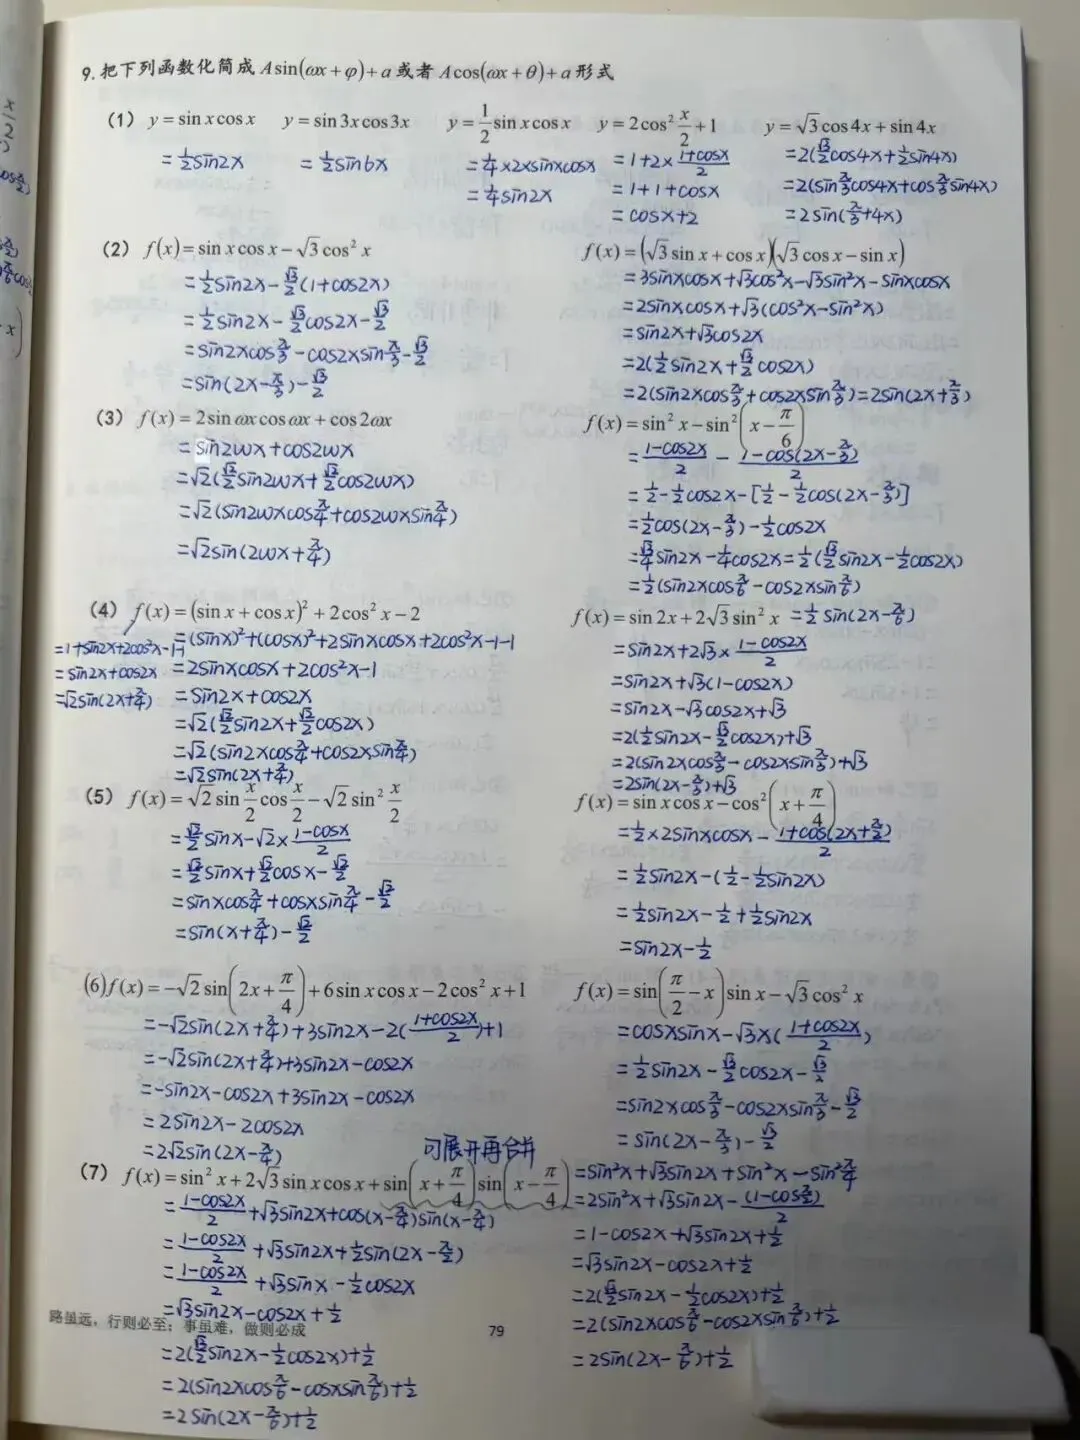 9. 把下列函数化简成 Asin(ωx+φ)+a 或者 Acos(ωx+θ)+a 形式
(1) y=sin x cos x  y=sin 3x cos 3x  y=\frac{1}{2}sin x cos x  y=2cos²\frac{x}{2}+1  y=√3cos 4x+sin 4x
=\frac{1}{2}sin2x
=\frac{1}{2}sin6x
=\frac{1}{4}×2×sinxcosx
=\frac{1}{4}sin2x
=1+2×\frac{1+cosx}{2}
=1+1+cosx
=cosx+2
=2(\frac{√3}{2}cos4x+\frac{1}{2}sin4x)
=2(sin\frac{π}{3}cos4x+cos\frac{π}{3}sin4x)
=2sin(\frac{π}{3}+4x)
(2) f(x)=sin x cos x-√3cos² x
=\frac{1}{2}sin2x-\frac{√3}{2}(1+cos2x)
=\frac{1}{2}sin2x-\frac{√3}{2}cos2x-\frac{√3}{2}
=sin2xcos\frac{π}{3}-cos2xsin\frac{π}{3}-\frac{√3}{2}
=sin(2x-\frac{π}{3})-\frac{√3}{2}
f(x)=(√3sin x+cos x)(√3cos x-sin x)
=3sinxcosx+√3cos²x-√3sin²x-sinxcosx
=2sinxcosx+√3(cos²x-sin²x)
=sin2x+√3cos2x
=2(\frac{1}{2}sin2x+\frac{√3}{2}cos2x)
=2(sin2xcos\frac{π}{3}+cos2xsin\frac{π}{3})=2sin(2x+\frac{π}{3})
(3) f(x)=2sin ωx cos ωx+cos 2ωx
=sin2ωx+cos2ωx
=√2(\frac{√2}{2}sin2ωx+\frac{√2}{2}cos2ωx)
=√2(sin2ωxcos\frac{π}{4}+cos2ωxsin\frac{π}{4})
=√2sin(2ωx+\frac{π}{4})
f(x)=sin² x-sin²(x-\frac{π}{6})
=\frac{1-cos2x}{2}-\frac{1-cos(2x-\frac{π}{3})}{2}
=\frac{1}{2}-\frac{1}{2}cos2x-[\frac{1}{2}-\frac{1}{2}cos(2x-\frac{π}{3})]
=\frac{1}{2}cos(2x-\frac{π}{3})-\frac{1}{2}cos2x
=\frac{√3}{4}sin2x-\frac{1}{4}cos2x=\frac{1}{2}(\frac{√3}{2}sin2x-\frac{1}{2}cos2x)
=\frac{1}{2}(sin2xcos\frac{π}{6}-cos2xsin\frac{π}{6})
=\frac{1}{2}sin(2x-\frac{π}{6})
(4) f(x)=(sin x+cos x)²+2cos² x-2
=1+sin2x+2cos²x-1-1
=sin2x+cos2x
=√2sin(2x+\frac{π}{4})
=(sinx)²+(cosx)²+2sinxcosx+2cos²x-1-1
=2sinxcosx+2cos²x-1
=sin2x+cos2x
=√2(\frac{√2}{2}sin2x+\frac{√2}{2}cos2x)
=√2(sin2xcos\frac{π}{4}+cos2xsin\frac{π}{4})
=√2sin(2x+\frac{π}{4})
f(x)=sin 2x+2√3sin² x
=sin2x+2√3×\frac{1-cos2x}{2}
=sin2x+√3(1-cos2x)
=sin2x-√3cos2x+√3
=2(\frac{1}{2}sin2x-\frac{√3}{2}cos2x)+√3
=2(sin2xcos\frac{π}{3}-cos2xsin\frac{π}{3})+√3
=2sin(2x-\frac{π}{3})+√3
(5) f(x)=√2sin\frac{x}{2}cos\frac{x}{2}-√2sin²\frac{x}{2}
=\frac{√2}{2}sinx-√2×\frac{1-cosx}{2}
=\frac{√2}{2}sinx+\frac{√2}{2}cosx-\frac{√2}{2}
=sinxcos\frac{π}{4}+cosxsin\frac{π}{4}-\frac{√2}{2}
=sin(x+\frac{π}{4})-\frac{√2}{2}
f(x)=sin x cos x-cos²(x+\frac{π}{4})
=\frac{1}{2}×2sinxcosx-\frac{1+cos(2x+\frac{π}{2})}{2}
=\frac{1}{2}sin2x-(\frac{1}{2}-\frac{1}{2}sin2x)
=\frac{1}{2}sin2x-\frac{1}{2}+\frac{1}{2}sin2x
=sin2x-\frac{1}{2}
(6)f(x)=-√2sin(2x+\frac{π}{4})+6sin x cos x-2cos² x+1
=-√2sin(2x+\frac{π}{4})+3sin2x-2(\frac{1+cos2x}{2})+1
=-√2sin(2x+\frac{π}{4})+3sin2x-cos2x
=-sin2x-cos2x+3sin2x-cos2x
=2sin2x-2cos2x
=2√2sin(2x-\frac{π}{4})
f(x)=sin(\frac{π}{2}-x)sin x-√3cos² x
=cosxsinx-√3×(\frac{1+cos2x}{2})
=\frac{1}{2}sin2x-\frac{√3}{2}cos2x-\frac{√3}{2}
=sin2xcos\frac{π}{3}-cos2xsin\frac{π}{3}-\frac{√3}{2}
=sin(2x-\frac{π}{3})-\frac{√3}{2}
可展开再合并
(7) f(x)=sin² x+2√3sin x cos x+sin(x+\frac{π}{4})sin(x-\frac{π}{4})
=\frac{1-cos2x}{2}+√3sin2x+cos(x-\frac{π}{4})sin(x-\frac{π}{4})
=\frac{1-cos2x}{2}+√3sin2x+\frac{1}{2}sin(2x-\frac{π}{2})
=\frac{1-cos2x}{2}+√3sinx-\frac{1}{2}cos2x
=√3sin2x-cos2x+\frac{1}{2}
=2(\frac{√3}{2}sin2x-\frac{1}{2}cos2x)+\frac{1}{2}
=2(sin2xcos\frac{π}{6}-cosxsin\frac{π}{6})+\frac{1}{2}
=2sin(2x-\frac{π}{6})+\frac{1}{2}
=sin²x+√3sin2x+sin²x-sin²\frac{π}{4}
=2sin²x+√3sin2x-\frac{(1-cos\frac{π}{2})}{2}
=1-cos2x+√3sin2x+\frac{1}{2}
=√3sin2x-cos2x+\frac{1}{2}
=2(\frac{√3}{2}sin2x-\frac{1}{2}cos2x)+\frac{1}{2}
=2(sin2xcos\frac{π}{6}-cos2xsin\frac{π}{6})+\frac{1}{2}
=2sin(2x-\frac{π}{6})+\frac{1}{2}
路虽远，行则必至；事虽难，做则必成
79